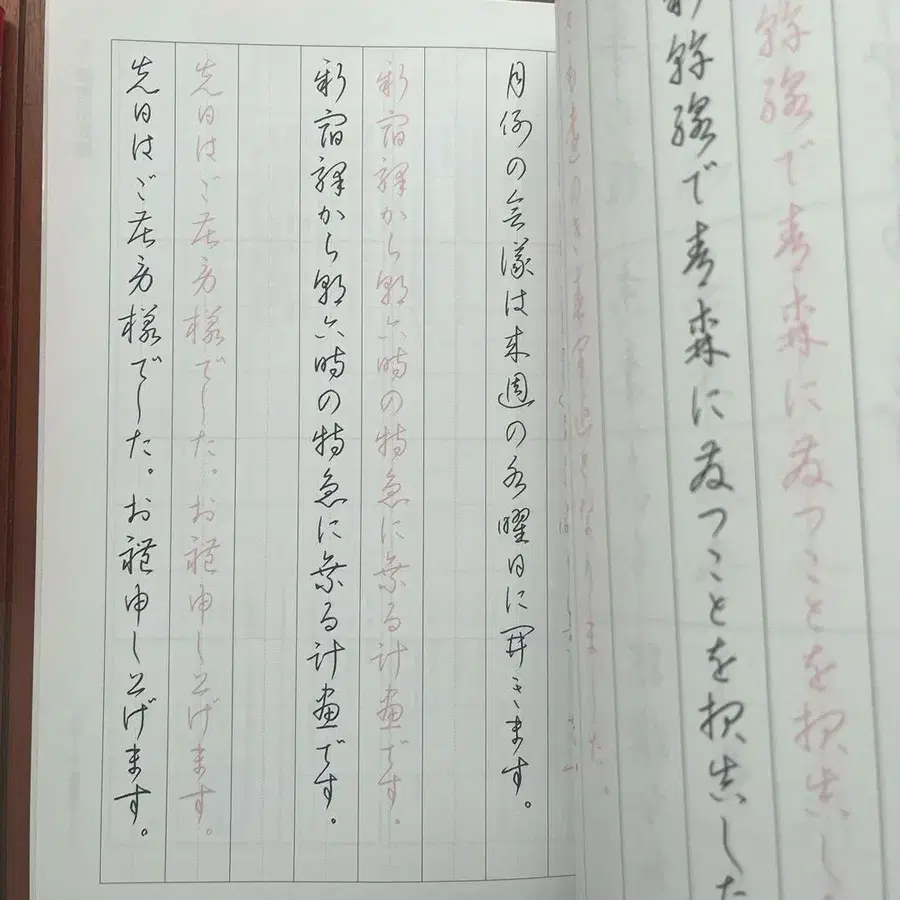 幹線で青森に発つことを報告し
新幹線で青森に発つことを報告した
月例の会議は来週の水曜日に開きます。
新宿驛から朝六時の特急に乗る計画です。
新宿驛から朝六時の特急に乗る計画です。
先日はご苦労様でした。お禮申し上げます。
先日はご苦労様でした。お禮申し上げます。